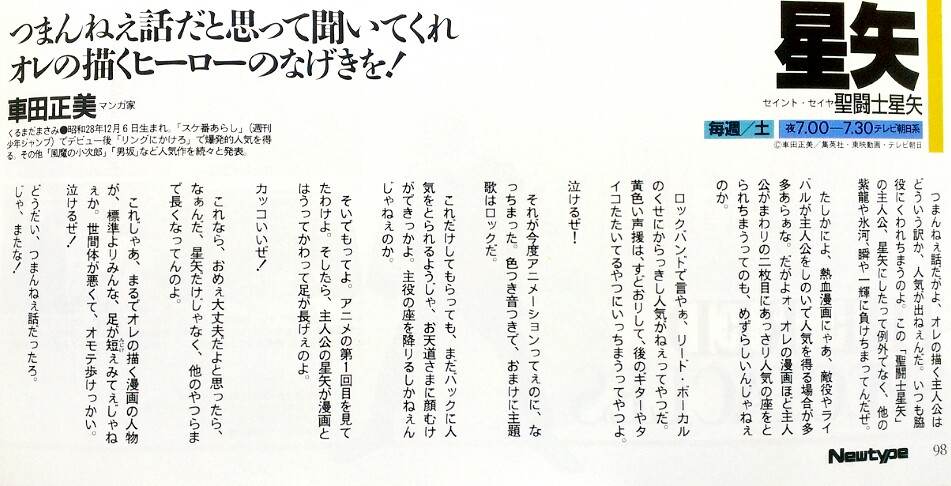 つまんねえ話だと思って聞いてくれ
オレの描くヒーローのなげきを！
車田正美 マンガ家
くるまだまさみ●昭和28年12月6日生まれ。「スケ番あらし」（週刊
少年ジャンプ）でデビュー後「リングにかけろ」で爆発的人気を得
る。その他「風魔の小次郎」「男坂」など人気作を続々と発表。
星矢
セイント・セイヤ 聖闘士星矢
毎週／土 夜7.00—7.30テレビ朝日系
©車田正美／集英社・東映動画・テレビ朝日
つまんねえ話だがよ、オレの描く主人公は
どういう訳か、人気が出ねえんだ。いつも脇
役にくわれちまうのよ。この「聖闘士星矢」
の主人公、星矢にしたって例外でなく、他の
紫龍や氷河、瞬や一輝に負けちまってんだぜ。
たしかによ、熱血漫画にゃあ、敵役やライ
バルが主人公をしのいで人気を得る場合が多
多あらぁな。だがよォ、オレの漫画ほど主人
公がまわりの二枚目にあっさり人気の座をと
られちまうってのも、めずらしいんじゃねぇ
のか。
ロックバンドで言やぁ、リード・ボーカル
のくせにからっきし人気がねぇってやつだ。
黄色い声援は、すどおりして、後のギターやタ
イコたたいてるやつにいっちまうってやつよ。
泣けるぜ！
それが今度アニメーションってぇのに、な
っちまった。色つき音つきで、おまけに主題
歌はロックだ。
これだけしてもらっても、まだバックに人
気をとられるようじゃ、お天道さまに顔むけ
ができっかよ。主役の座を降りるしかねぇん
じゃねぇのか。
そいでもってよ。アニメの第1回目を見て
たわけよ。そしたら、主人公の星矢が漫画と
はうってかわって足が長げぇのよ。
カッコいいぜ！
これなら、おめぇ大丈夫だよと思ったら、
なぁんだ、星矢だけじゃなく、他のやつらま
で長くなってんのよ。
これじゃあ、まるでオレの描く漫画の人物
が、標準よりみんな、足が短ぇみてぇじゃね
ぇか。世間体が悪くて、オモテ歩けっかい。
泣けるぜ！
どうだい、つまんねぇ話だったろ。
じゃ、またな！
Newtype 98